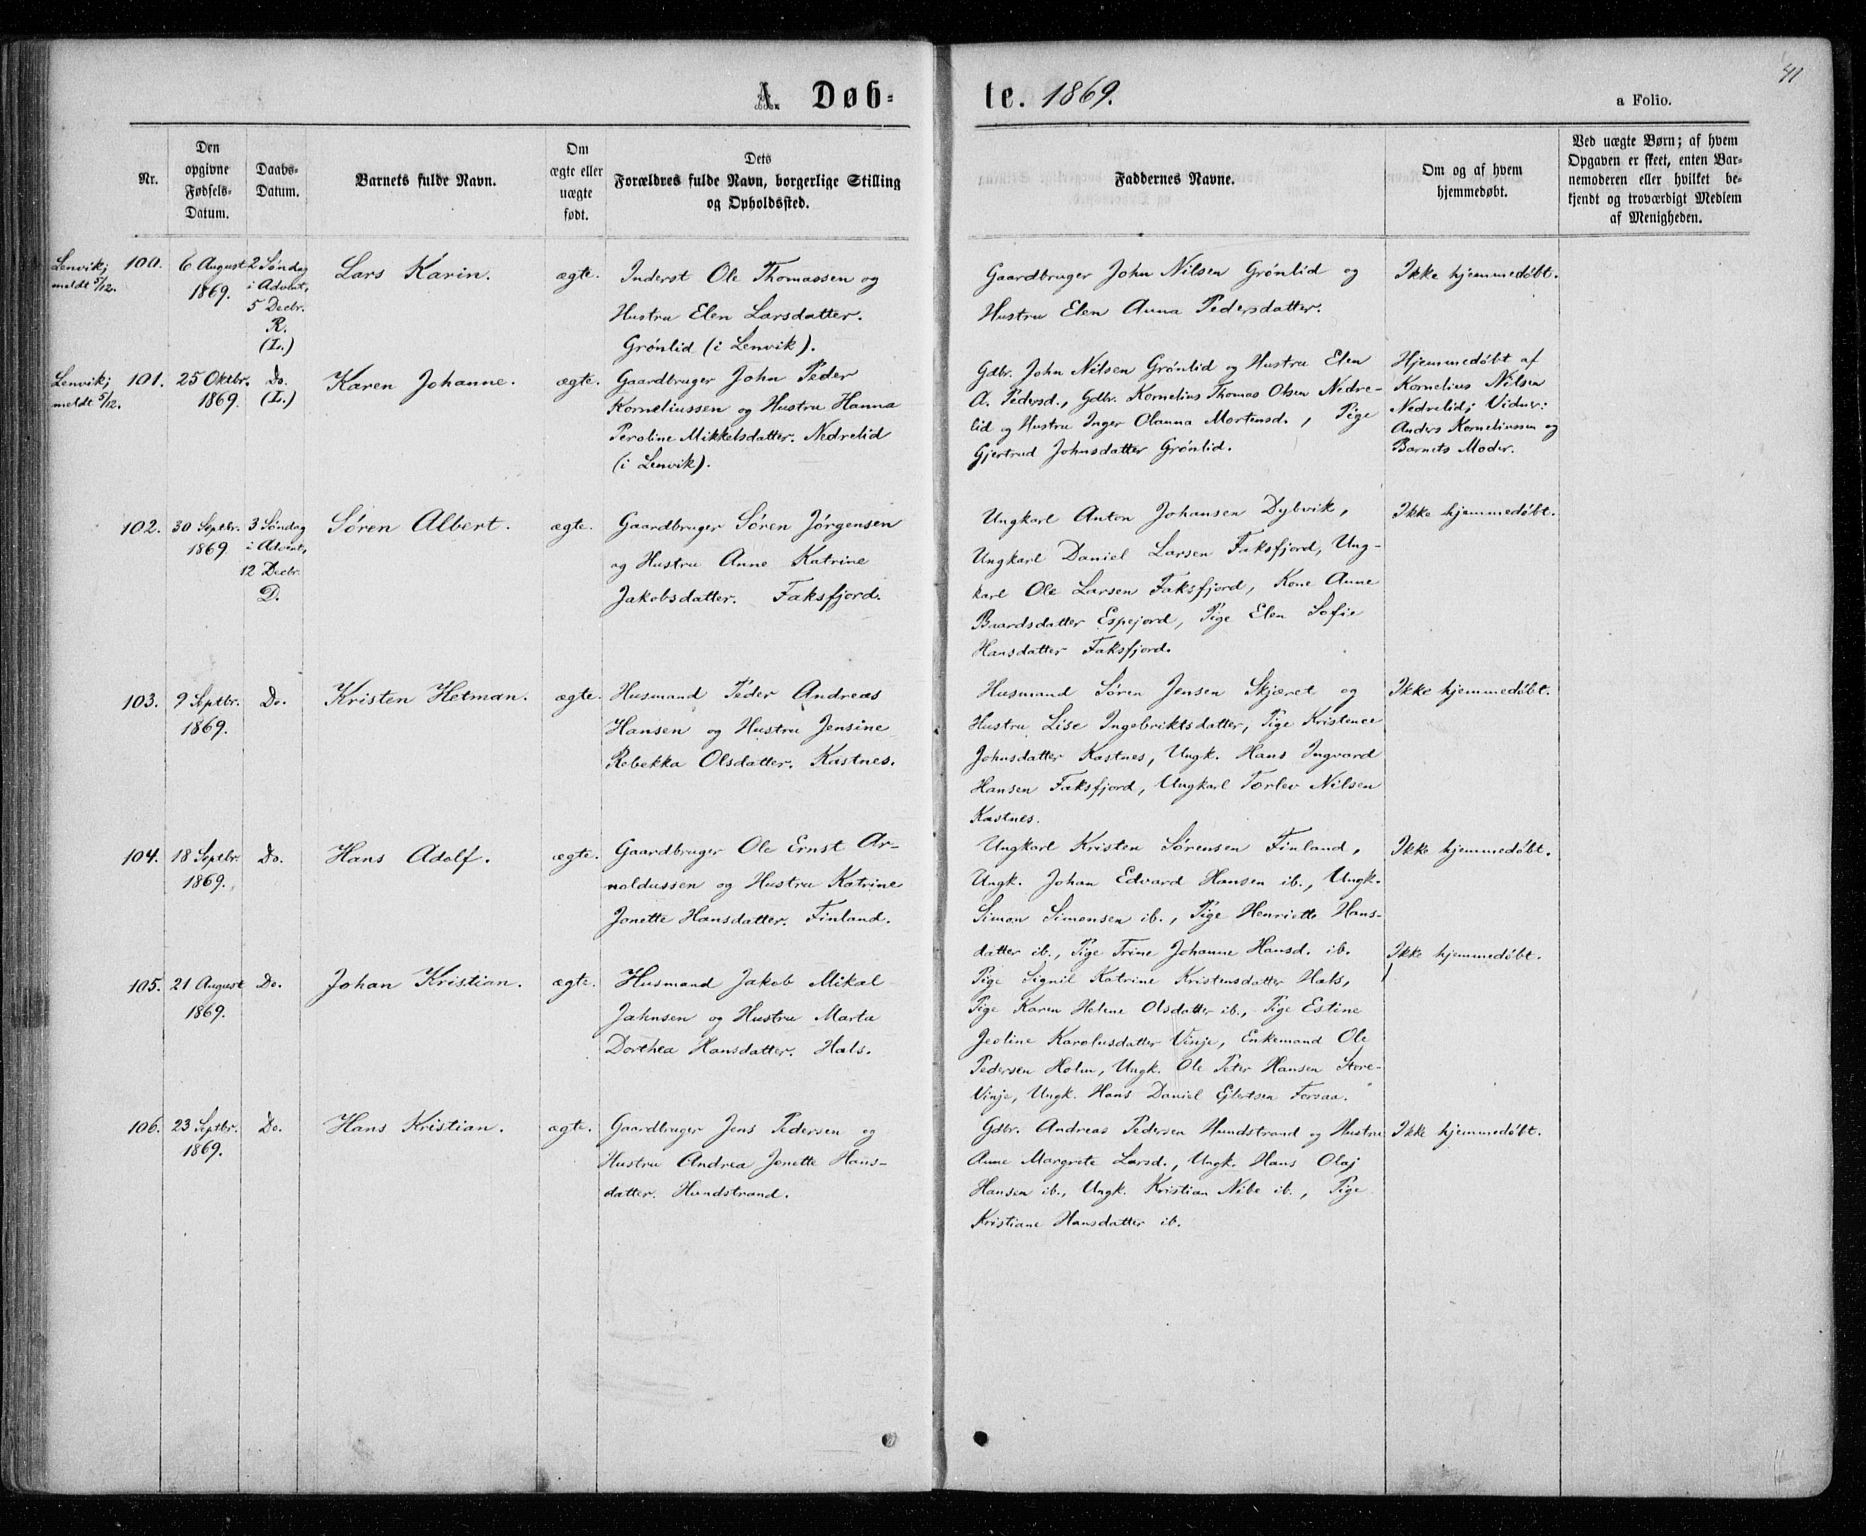 A. Døb-
te. 1869.
41
a Folio.
Nr.
Den
opgivne
Fødsels-
Datum.
Daabs-
Datum.
Barnets fulde Navn.
Om
ægte eller
uægte
født.
Dets
Forældres fulde Navn, borgerlige Stilling
og Opholdssted.
Faddernes Navne.
Om og af hvem
hjemmedøbt.
Ved uægte Børn; af hvem
Opgaven er skeet, enten Bar-
nemoderen eller hvilket be-
kjendt og troværdigt Medlem
af Menigheden.
Lenvik;
meldt 5/12.
100.
6 August
1869.
2 Søndag
i Advent,
5 Decbr.
R.
(L.)
Lars Karin.
ægte.
Inderst Ole Thomassen og
Hustru Elen Larsdatter.
Grønlid (i Lenvik).
Gaardbruger John Nilsen Grønlid og
Hustru Elen Anna Pedersdatter.
Ikke hjemmedøbt.
Lenvik;
meldt 5/12.
101.
25 Oktbr.
1869.
Do.
(L.)
Karen Johanne.
ægte.
Gaardbruger John Peder
Korneliussen og Hustru Hanna
Peroline Mikkelsdatter. Nedrelid
(i Lenvik).
Gdbr. John Nilsen Grønlid og Hustru Elen
A. Pedersd., Gdbr. Kornelius Thomas Olsen Nedre-
lid og Hustru Inger Olanna Mortensd., Pige
Gjertrud Johnsdatter Grønlid.
Hjemmedøbt af
Kornelius Nilsen
Nedrelid; Vidner:
Anders Korneliussen og
Barnets Moder.
102.
30 Septbr.
1869
3 Søndag
i Advent,
12 Decbr.
D.
Søren Albert.
ægte.
Gaardbruger Søren Jørgensen
og Hustru Anne Katrine
Jakobsdatter. Faksfjord.
Ungkarl Anton Johansen Dybvik,
Ungkarl Daniel Larsen Faksfjord, Ung-
karl Ole Larsen Faksfjord, Kone Anne
Baardsdatter Espejord, Pige Elen Sofie
Hansdatter Faksfjord.
Ikke hjemmedøbt.
103.
9 Septbr.
1869.
Do.
Kristen Hetman.
ægte.
Husmand Peder Andreas
Hansen og Hustru Jensine
Rebekka Olsdatter. Kastnes.
Husmand Søren Jensen Skjæret og
Hustru Lise Ingebriktsdatter, Pige Kristence
Johnsdatter Kastnes, Ungk. Hans Ingvard
Hansen Faksfjord, Ungkarl Torlev Nilsen
Kastnes.
Ikke hjemmedøbt.
104.
18 Septbr.
1869.
Do.
Hans Adolf.
ægte.
Gaardbruger Ole Ernst Ar-
noldussen og Hustru Katrine
Jonette Hansdatter. Finland.
Ungkarl Kristen Sørensen Finland,
Ungk. Johan Edvard Hansen ib., Ungk.
Simon Simonsen ib., Pige Henriette Hans-
datter ib., Pige Trine Johanne Hansd. ib.
Ikke hjemmedøbt.
105.
21 August
1869.
Do.
Johan Kristian.
ægte.
Husmand Jakob Mikal
Jahnsen og Hustru Marta
Dorthea Hansdatter. Hals.
Pige Signil Katrine Kristensdatter Hals,
Pige Karen Helene Olsdatter ib., Pige Estine
Jeoline Karolusdatter Vinje, Enkemand Ole
Pedersen Holm, Ungk. Ole Peter Hansen Store-
Vinje, Ungk. Hans Daniel Ejlertsen Forsaa.
Ikke hjemmedøbt.
106.
23 Septbr.
1869.
Do.
Hans Kristian.
ægte.
Gaardbruger Jens Pedersen og
Hustru Andrea Jonette Hans-
datter. Hundstrand.
Gdbr. Andreas Pedersen Hundstrand og Hustru
Anne Margrete Larsd., Ungk. Hans Olaj
Hansen ib., Ungk. Kristian Nibe ib., Pige
Kristiane Hansdatter ib.
Ikke hjemmedøbt.